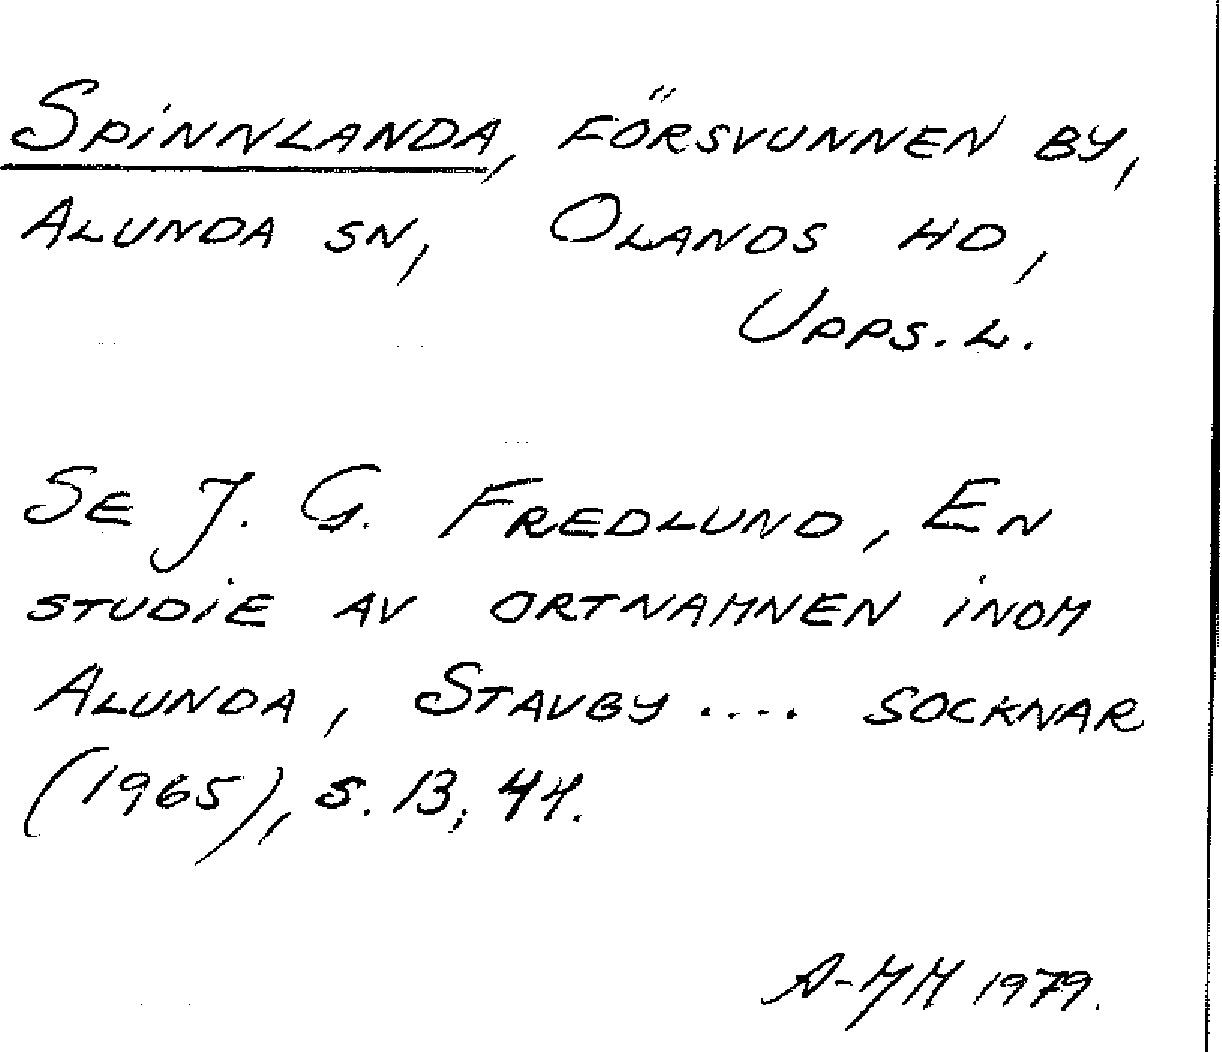 SPINNLANDA, FÖRSVUNNEN BY,
ALUNDA SN, OLANDS HD,
UPPS. L.
SE J. G. FREDLUND, EN
STUDIE AV ORTNAMNEN INOM
ALUNDA, STAVBY .... SOCKNAR
(1965), S. 13, 44.
A-MM 1979.